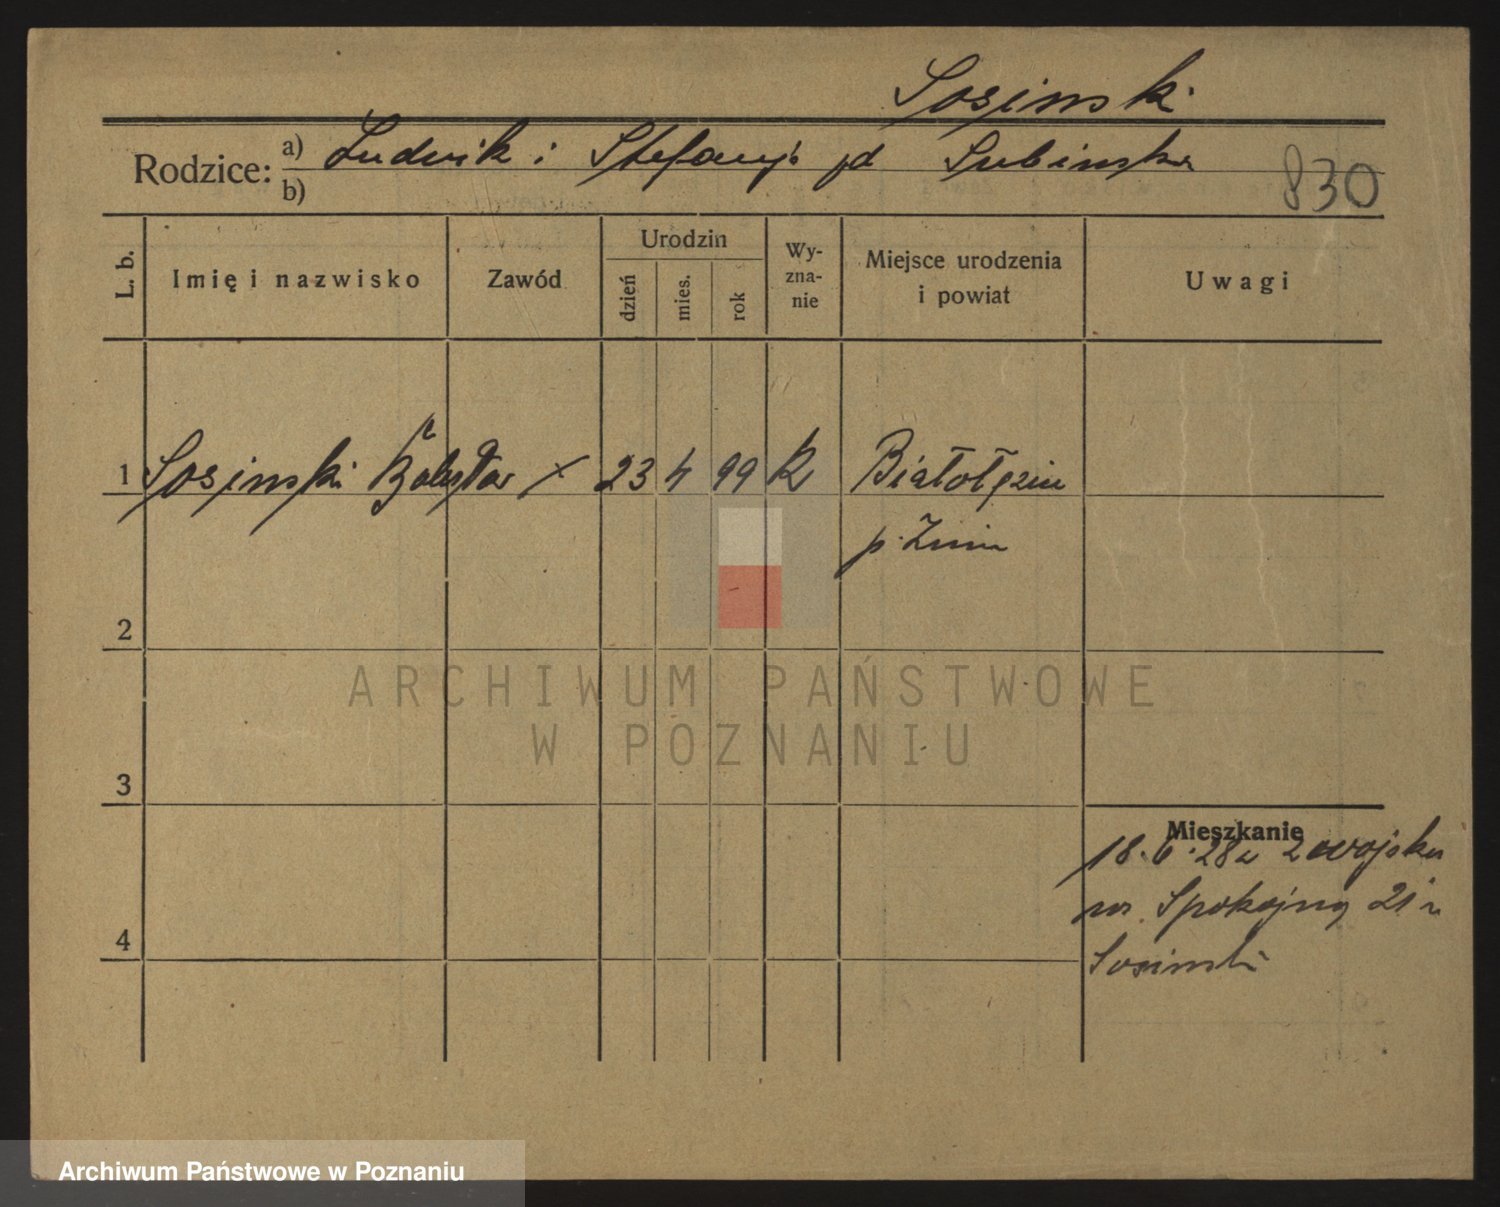 Sosinski
Rodzice: a) Ludwik i Stefanja zd Lubinska
b)
830
L. b. Imię i nazwisko Zawód Urodzin dzień mies. rok Wy-zna-nie Miejsce urodzenia i powiat Uwagi
1 Sosinski Bolesław 23 4 99 k Białołęzin
p. Żnin
2
ARCHIWUM PAŃSTWOWE
W POZNANIU
3
Mieszkanie
18.6.28 z wojska
na Spokojną 21 u
4
Sosinski
Archiwum Państwowe w Poznaniu